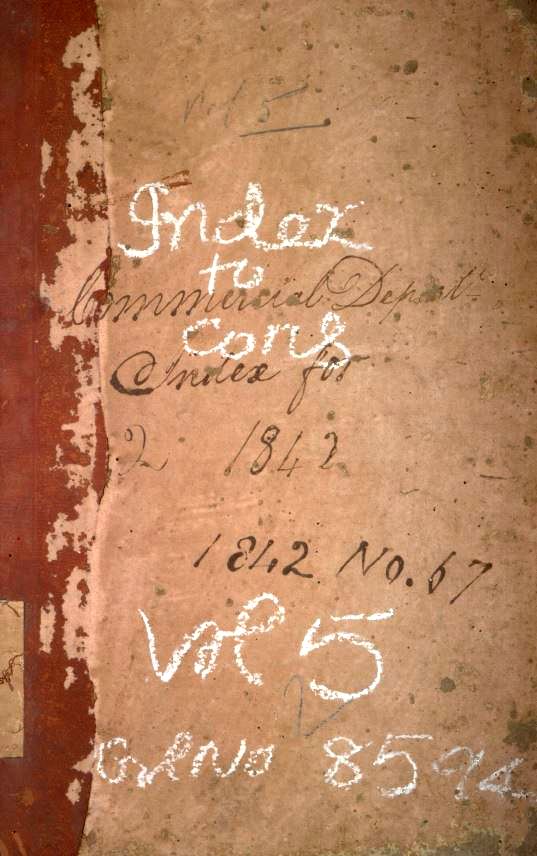 Vol 5
Index
to
Commercial Depart.t
cons
Index for
2 1842
1842 No. 67
Vol 5
No 859